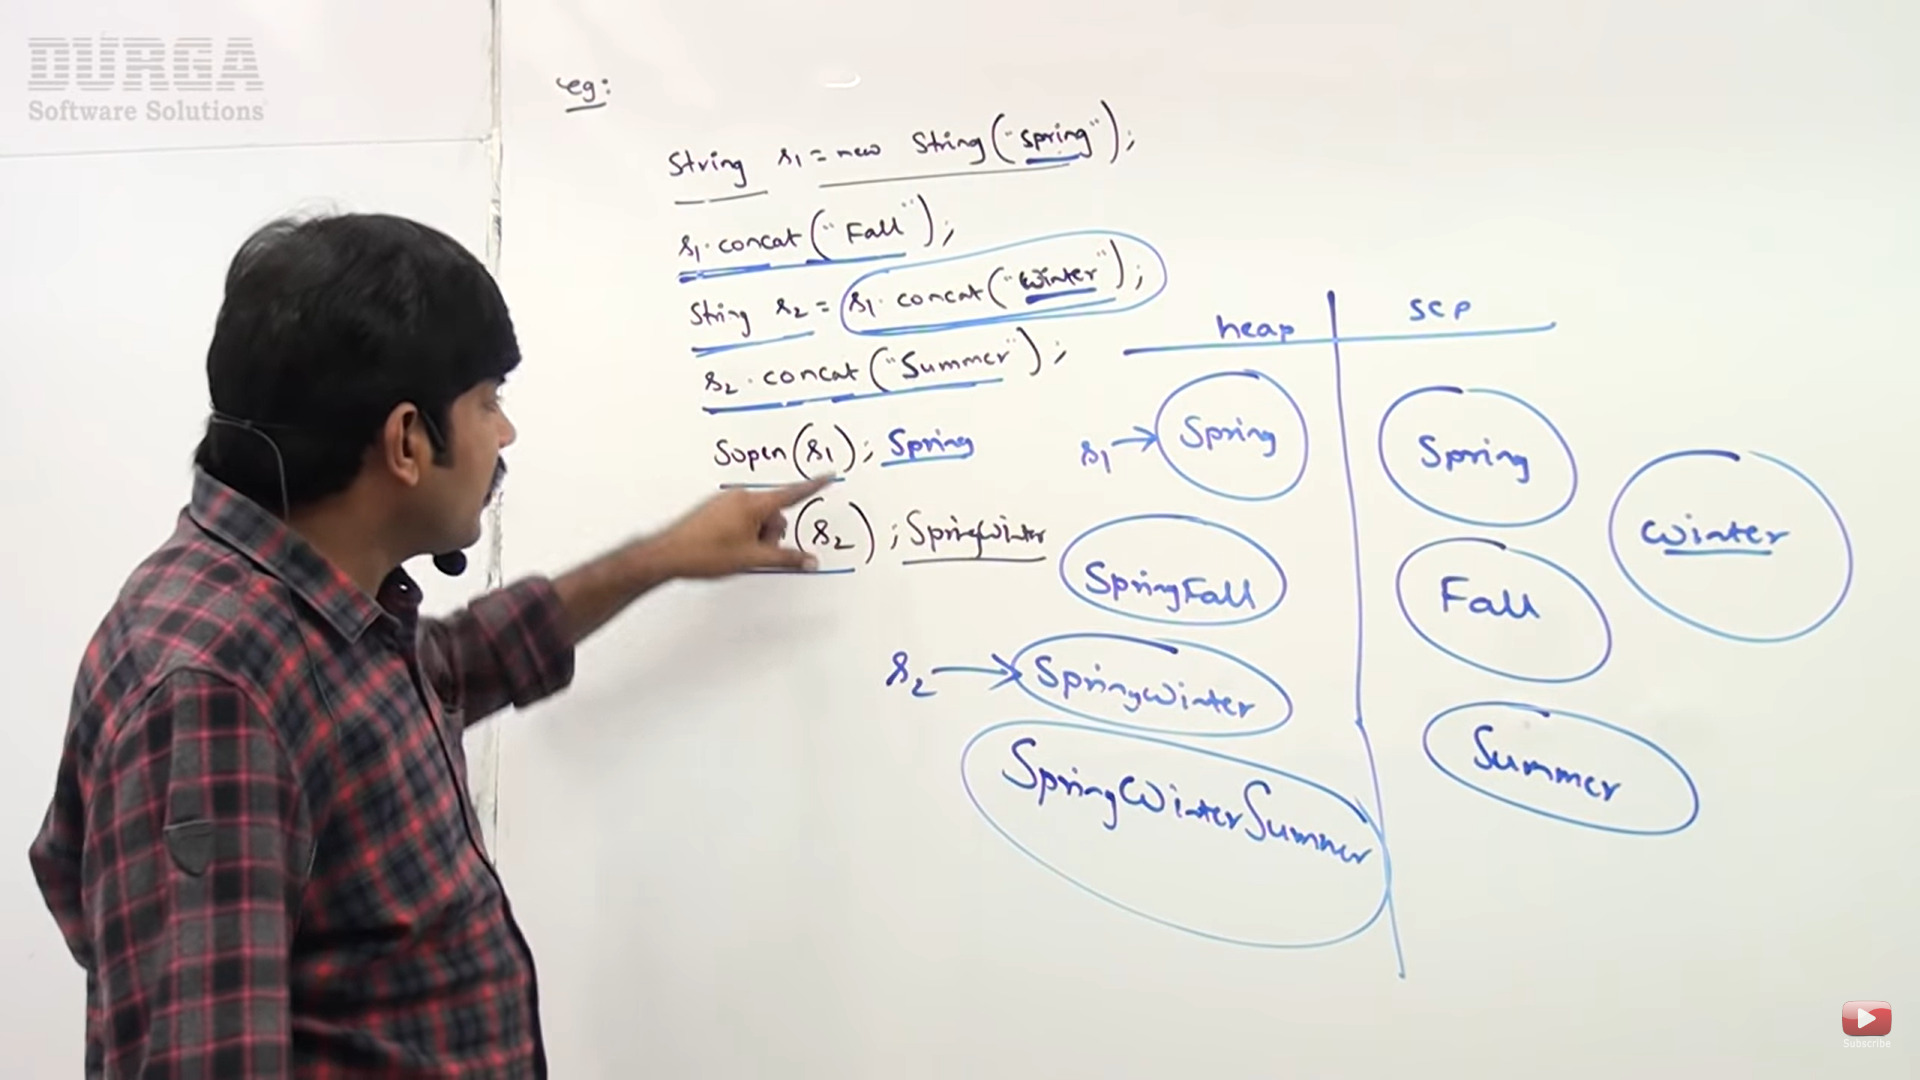 DURGA
Software Solutions
eg:
String s1 = new String("spring");
s1.concat("Fall");
String s2 = s1.concat("winter");
s2.concat("Summer");
Sopln(s1); Spring
(s2); SpringWinter
heap
SCP
s1 → Spring
Spring
Winter
SpringFall
Fall
s2 → SpringWinter
Summer
SpringWinterSummer
Subscribe